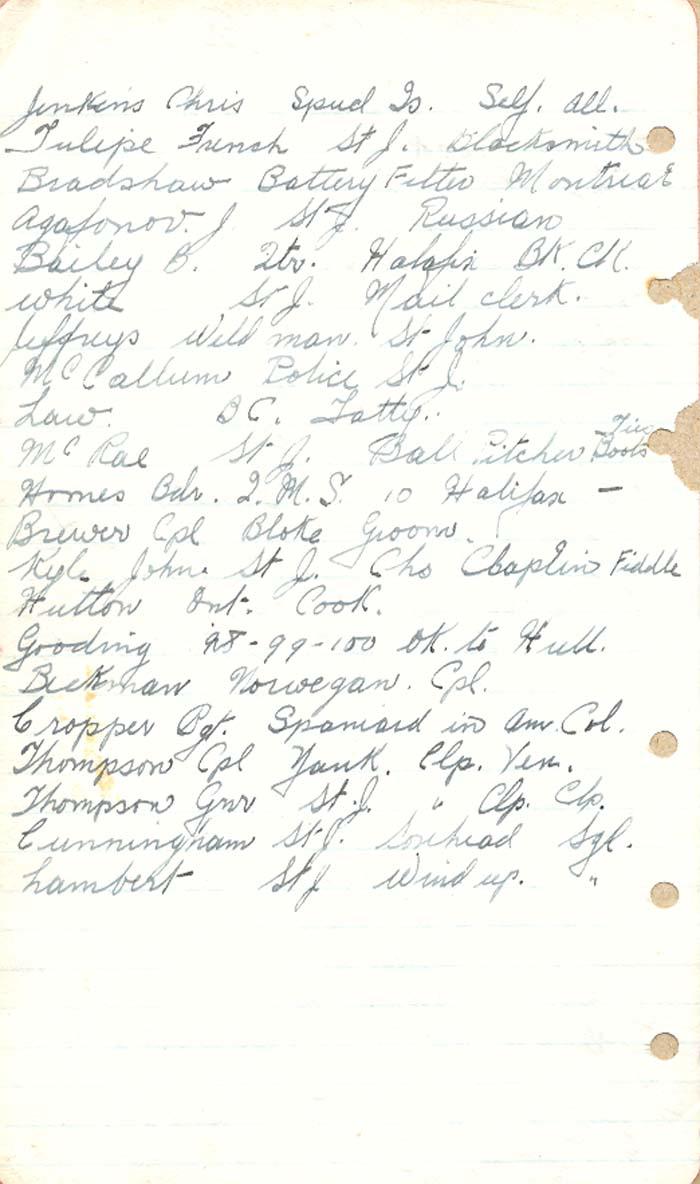 Jenkins Chris Spud Is. Self. all.
Tulipe French St J. Blacksmith
Bradshaw Battery Fitter Montreal
Agafonov. J. St J. Russian
Bailey B. Qtr. Halafix BK. CK.
White St J. Mail clerk.
Jeffreys Wild man. St John.
McCallum Police St J.
Law. BC. Fatty.
McRae St J. Ball Pitcher Boots
Homes Bdr. Q.M.S. 10 Halifax –
Brewer Cpl Bloke Groom.
Kyle John. St J. Cho Chaplin Fiddle
Hutton Ont. Cook.
Gooding 98-99-100 OK. to Hull.
Beekman Norwegan. Cpl.
Cropper Sgt. Spaniard in Am. Col.
Thompson Cpl Yank. Clp. Ven.
Thompson Gnr St. J. " Clp. Clp.
Cunningham St J. Sorehead Sgl.
Lambert St J Wind up. "